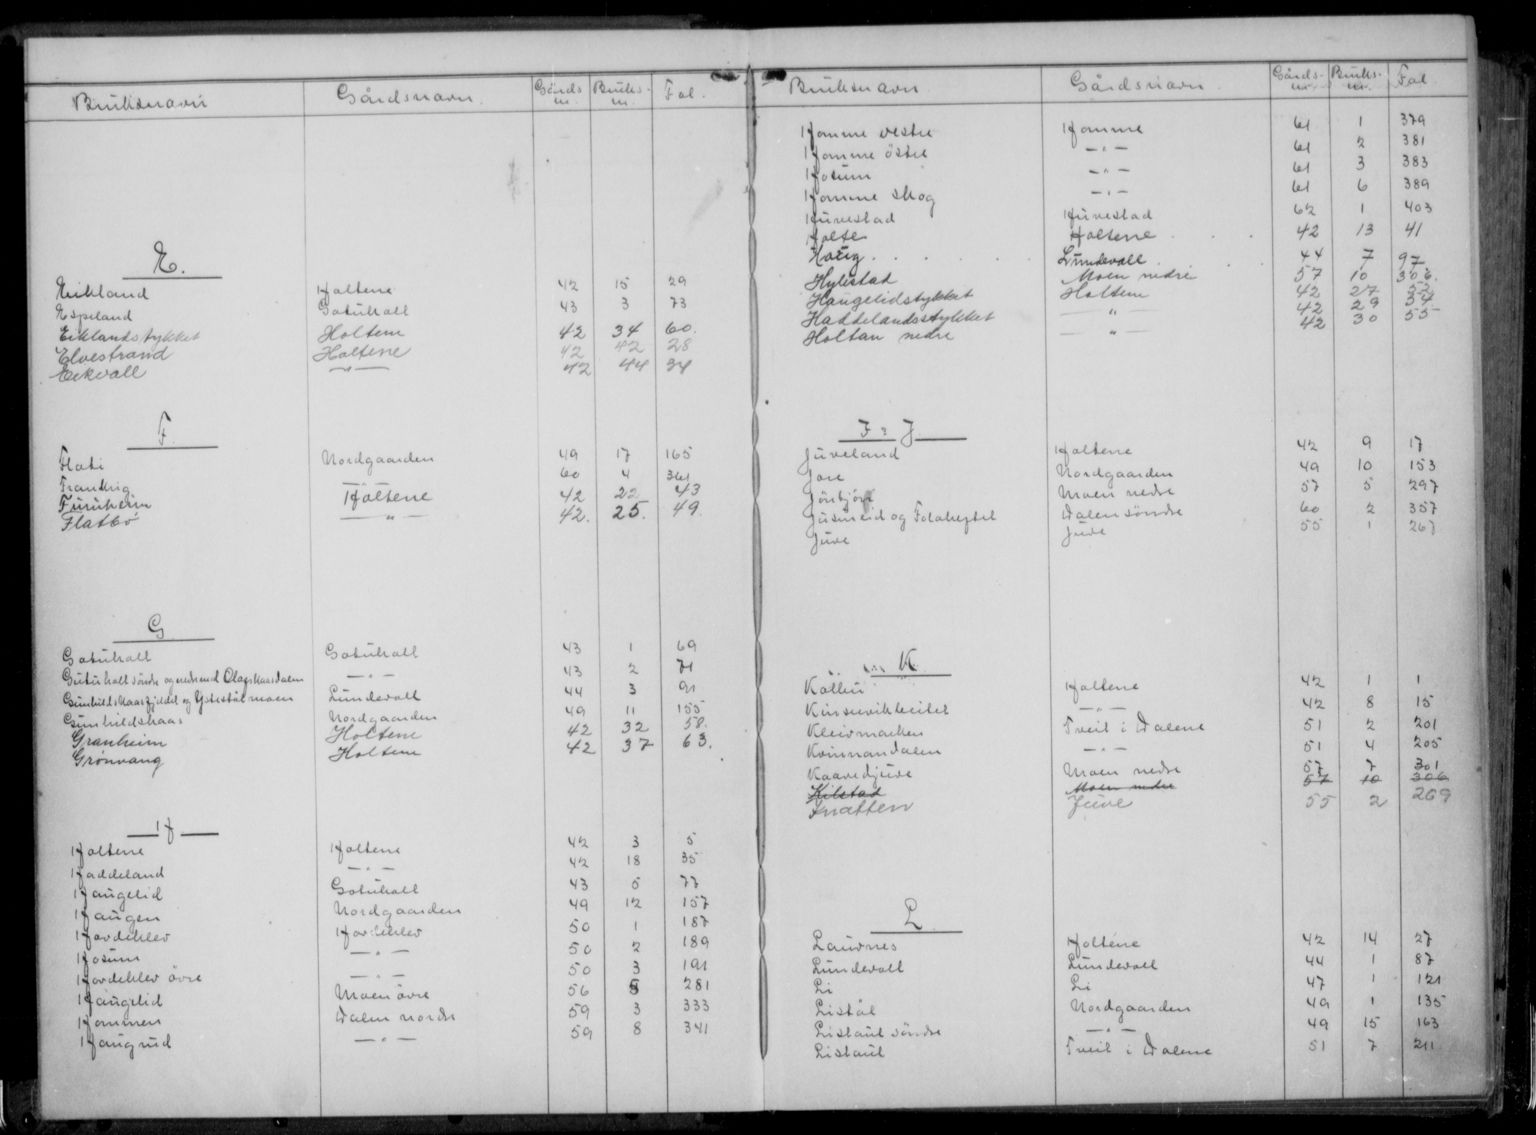 Bruksnavn Gårdsnavn. Gårds nr. Bruks- nr. Fol.
E.
Eikland Holtene 42 15 29
Espeland Gotuholt 43 3 73
Eiklandstykket Holtene 42 34 60.
Elvestrand Holtene 42 42 28
Eikvoll — " — 42 44 34
F.
Flati Nordgaarden 49 17 165
Frankrig 60 4 361
Furuheim Holtene 42 22 43
Flatbø — " — 42. 25. 49.
G
Gotuholt Gotuholt 43 1 69
Gutuholt söndre og nedre med Olafskaasdalen — " — 43 2 71
Gunhildskaasfjeldet og Ystestölmoen Lundevoll 44 3 91
Gunhildskaas Nordgaarden 49 11 155
Granheim Holtene 42 32 58.
Grønvang Holtene 42 37 63.
H
Holtene Holtene 42 3 5
Haddeland — " — 42 18 35
Haugelid Gotuholt 43 5 77
Haugen Nordgaarden 49 12 157
Hovdeklev Hovdeklev 50 1 187
Hosum — " — 50 2 189
Hovdeklev övre — " — 50 3 191
Haugelid Moen övre 56 5 281
Hommen Dalen nordre 59 3 333
Haugrud — " — 59 8 341
Bruksnavn Gårdsnavn. Gårds- nr. Bruks- nr. Fol.
Homme vestre Homme 61 1 379
Homme östre — " — 61 2 381
Hosum — " — 61 3 383
Homme skog — " — 61 6 389
Huvestad Huvestad 62 1 403
Holte Holtene 42 13 41
Lundevall 44 7 97
Hylestad Moen nedre 57 10 306.
Haugelidstykket Holtene 42 27 52
Haddelandsstykket — " — 42 29 54
Holtan nedre " 42 30 55
I & J
Juveland Holtene 42 9 17
Jore Nordgaarden 49 10 153
Moen nedre 57 5 297
Jusmeid og Folaheftet Dalen söndre 60 2 357
Juve Juve 55 1 267
K
Kötlui Holtene 42 1 1
Kinsevikbeitet 42 8 15
Kleivmarken Tveit i Dalene 51 2 201
Kvinnandalen — " — 51 4 205
Kaavedjuve Moen nedre 57 7 301
Kilstad Moen nedre 57 10 306
Knatten Juve 55 2 269
L
Laurnes Holtene 42 14 27
Lundevoll Lundevoll 44 1 87
Li Li 47 1 121
Listöl Nordgaarden 49 1 135
Listaul söndre — " — 49 15 163
Listaul Tveit i Dalene 51 7 211